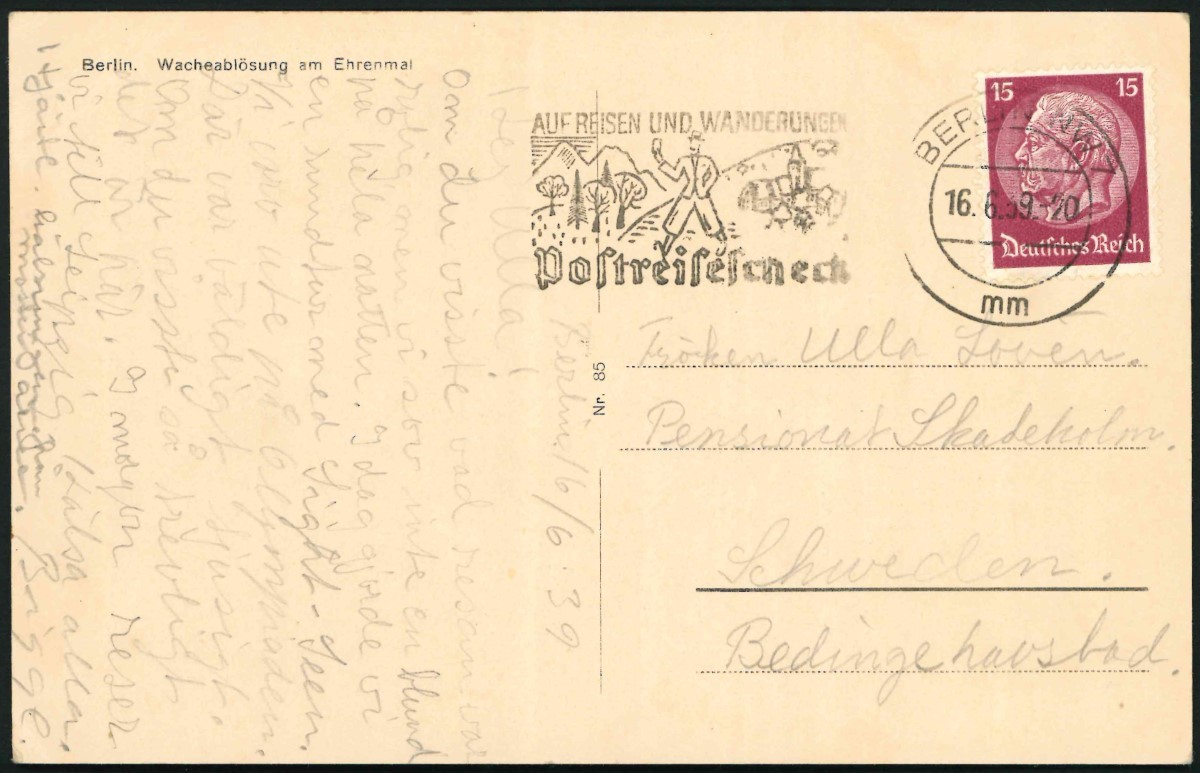 Berlin. Wacheablösung am Ehrenmal
AUF REISEN UND WANDERUNGEN
Postreisescheck
15 15
Deutsches Reich
BERLIN NW 7
16.6.39.-20
mm
Nr. 85
Fröken Ulla Lovén.
Pensionat Skadeholm.
Schweden.
Bedingehavsbad.
Berlin 16/6. 39.
Ulla!
Om du visste vad resan var
rolig men vi sov inte en blund
på hela natten. I dag gjorde vi
en rundtur med Sight-Seen.
Vi voro ute på Olympiaden.
Där var väldigt tjusigt.
Om du visste så trevligt
det är här. I morgon reser
vi till Leipzig. Hälsa alla.
Bigge.